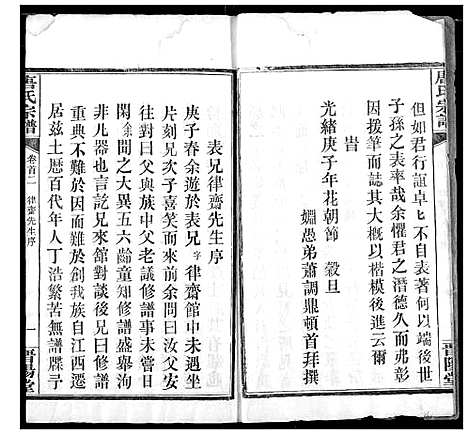 唐氏宗譜
但如君行誼卓卓不自表著何以端後世
子孫之表率哉余懼君之潛德久而弗彰
因援筆而誌其大概以楷模後進云爾
旹
光緒庚子年花朝節　穀旦
姻愚弟蕭調鼎頓首拜撰
晉陽堂
表兄律齋先生序
庚子春余遊於表兄字律齋館中未遇坐
片刻見次子喜笑而來前余問曰汝父安
往對曰父與族中父老議修譜事未嘗日
閑余聞之大異五六齡童知修譜盛舉洵
非凡器也言訖兄來館對談後兄曰修譜
重典不難於因而難於創我族自江西遷
居茲土歷百代年人丁浩繁苦無譜牒予
唐氏宗譜
卷首二
律齋先生序
一
晉陽堂